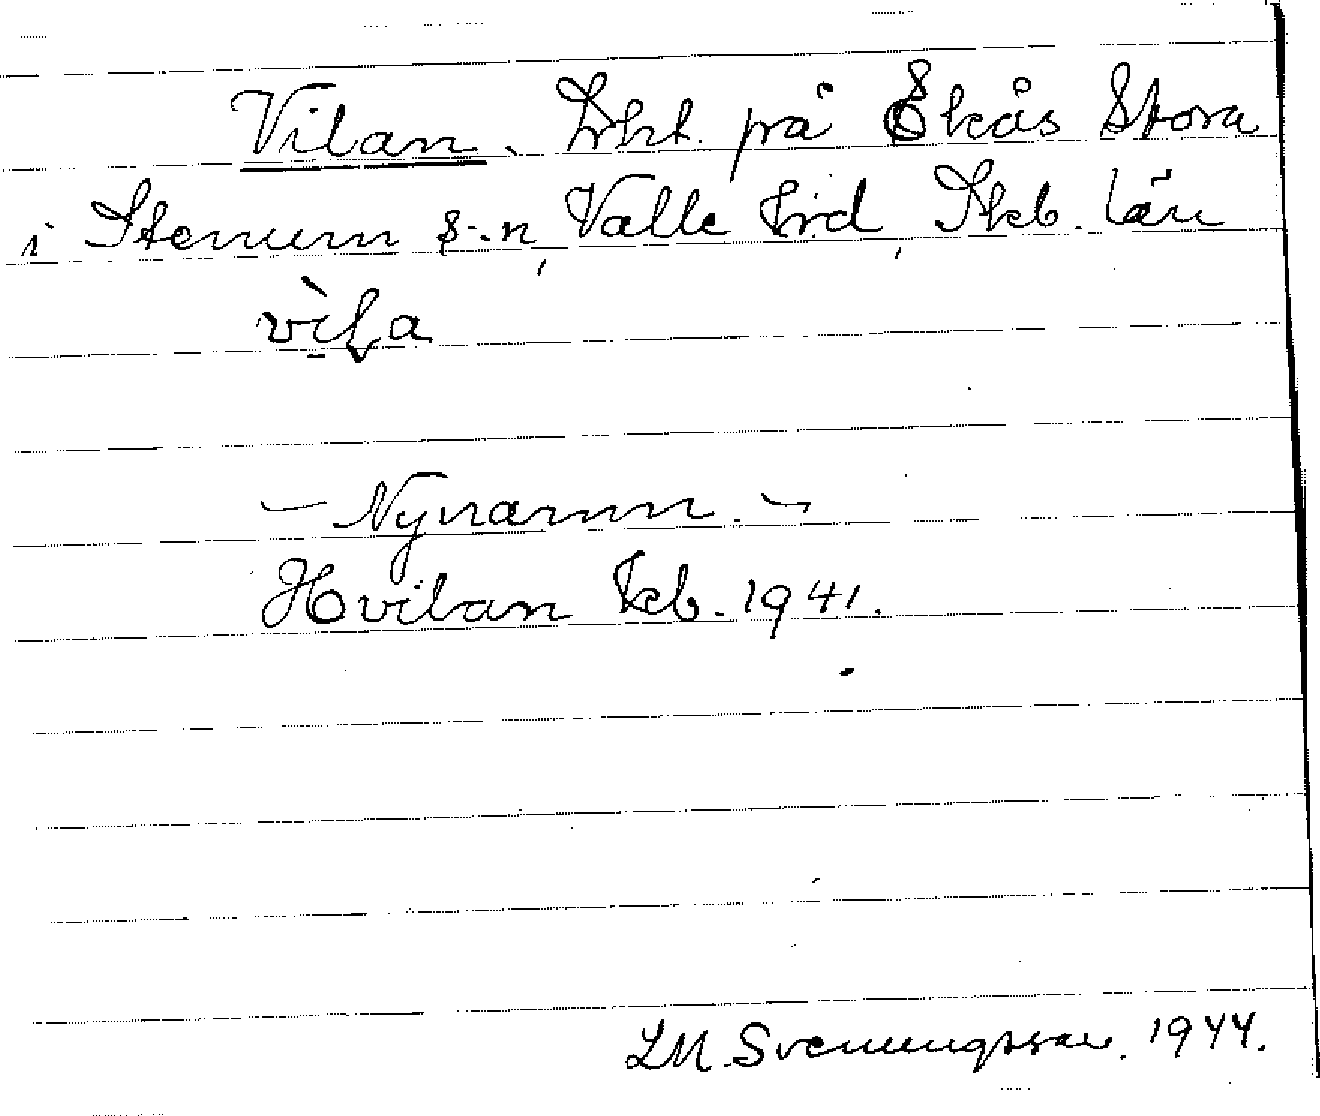 Vilan. Lht. på Ekås Stora
i Stenum s-n, Valle hrd, Skb. län
vila
- Nynamn. -
Hvilan Kb. 1941.
LM. Svenungsson. 1944.